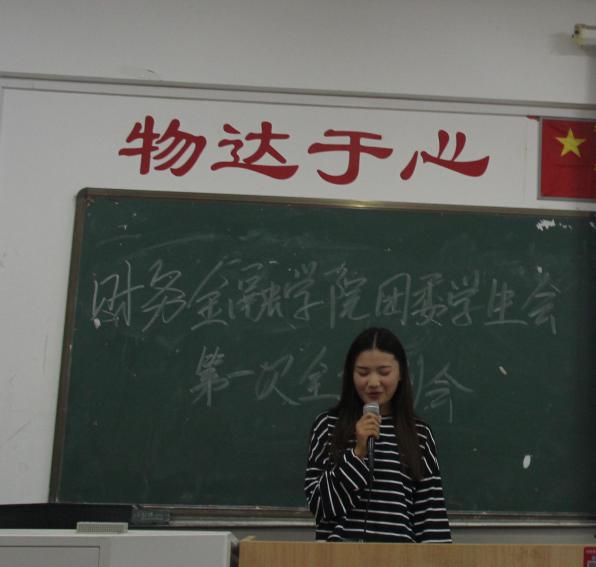 物达于心
财务金融学院团委学生会
第一次全 会